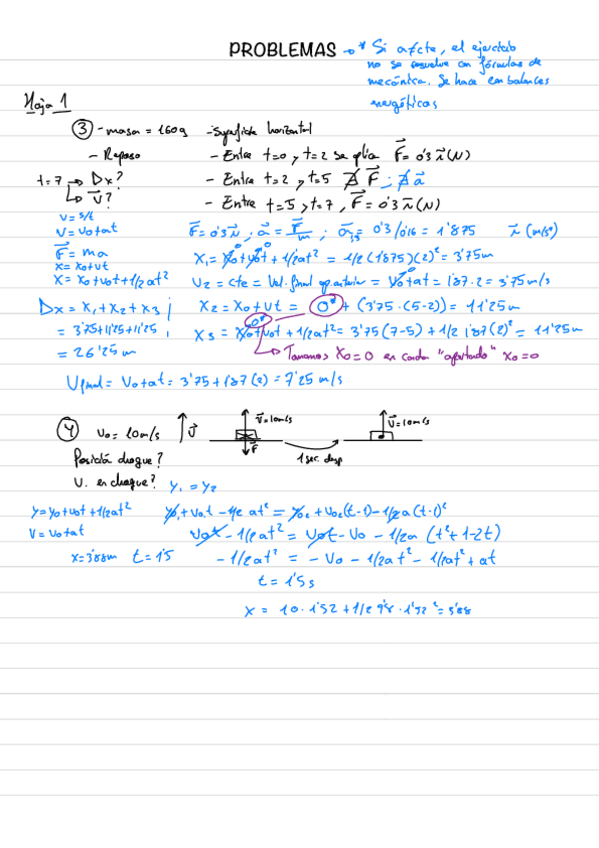 PROBLEMAS → * Si afecta, el ejercicio
no se resuelve con fórmulas de
mecánica. Se hace con balances
energéticos
Hoja 1
③ - masa = 160g - Superficie horizontal
- Reposo - Entre t=0 y t=2 se aplica F⃗ = 0'3 i⃗ (N)
t=7 → Dx? - Entre t=2 y t=5 ∄ F⃗ ; ∄ a⃗
↳ V⃗? - Entre t=5 y t=7, F⃗ = 0'3 i⃗ (N)
V = s/t
V = Vo+at F⃗ = 0'3 i⃗ ; a⃗ = F⃗/m ; 0'3/0'16 = 1'875 i⃗ (m/s²)
F⃗ = ma X₁ = Xo+Vot+1/2at² = 1/2 (1'875)(2)² = 3'75m
X = Xo+Vt
X = Xo+Vot+1/2at² V₂ = cte = Vel. final ap. anterior = Vo+at = 1'87·2 = 3'75 m/s
Dx = X₁+X₂+X₃ ; X₂ = Xo+Vt = 0 + (3'75·(5-2)) = 11'25m
= 3'75+11'25+11'25 ; X₃ = Xo+Vot+1/2at² = 3'75(7-5)+1/2 1'87(2)² = 11'25m
= 26'25m → Tomamos Xo=0 en cada "apartado" Xo=0
Vfinal = Vo+at = 3'75+1'87(2) = 7'25 m/s
④ Vo = 10m/s ↑V⃗ V⃗=10m/s V⃗=10m/s
F⃗
Posición choque? 1 sec. desp
V. en choque? Y₁ = Y₂
y=yo+vot+1/2at² yo₁+Vo₁t-1/2at² = yo₂+Vo₂(t-1)-1/2a(t-1)²
V=Vo+at Vot-1/2at² = Vot-Vo-1/2a (t²+1-2t)
X=3'88m t=1'5 -1/2at² = -Vo-1/2at²-1/2at²+at
t=1'5s
X = 10·1'52+1/2 9'8·1'52² = 3'88